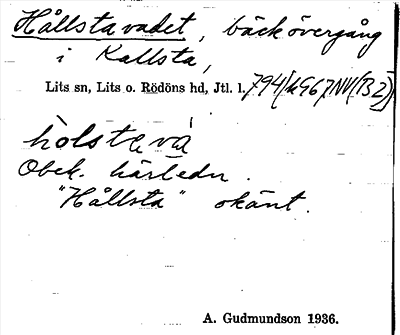 Hållstavadet, bäckövergång
i Kallsta,
Lits sn, Lits o. Rödöns hd, Jtl. l.
hòlstavá
Obek. härledn.
"Hållsta" okänt.
A. Gudmundson 1936.